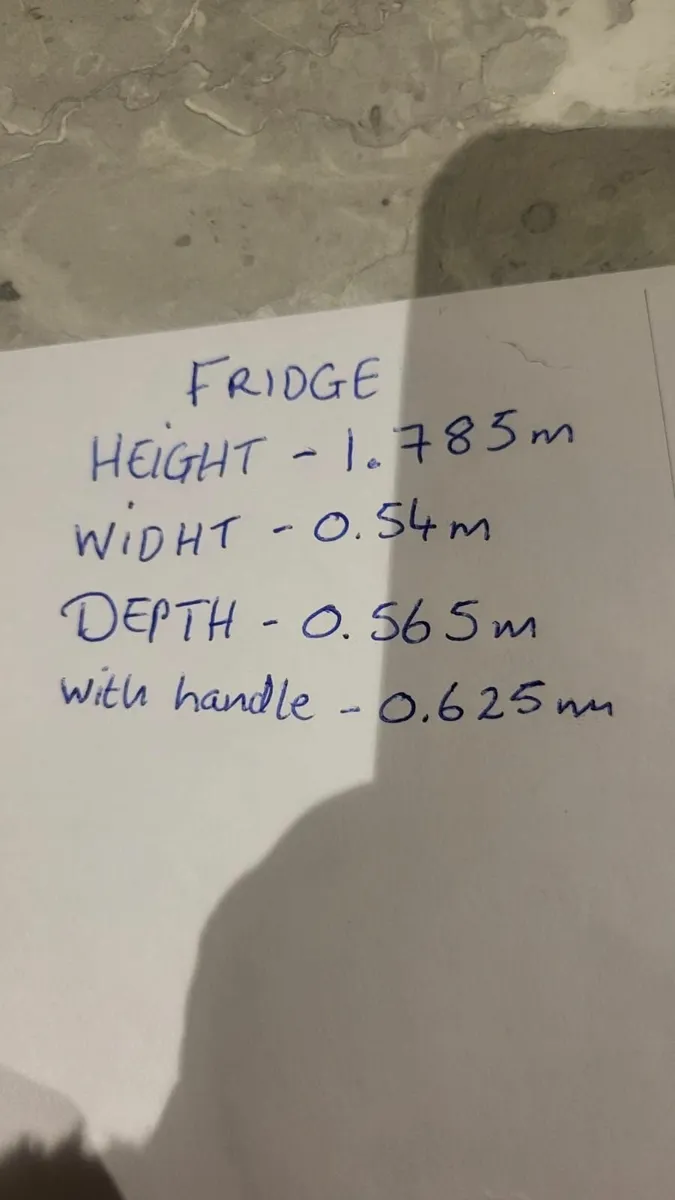 FRIDGE
HEiGHT - 1.785m
WiDHT - 0.54m
DEPTH - 0.565m
with handle - 0.625m